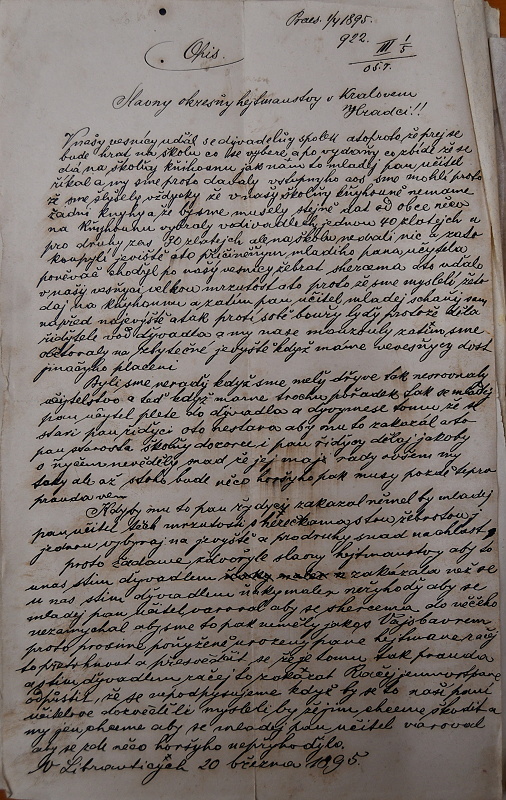 Praes. 1/4 1895.
922. III 1/5
Opis.
Slavny okresny hejtmanstvy v Kralovem
Hradci!!
V našy vesnicy udál se dyvadelny spolek atoproto, že prej se
bude hrat na školu co se vybere, apo vydany co zbide že se
dá na školny knihovnu jak nám to mladej pan učitel
řikal a my sme proto dataly vstupnyho cos sme mohli proto
že sme slyšely vždycky že v našy školny knyhovně nemáme
žadni knyhy a že bysme musely stejně dat od obce něco
na knyhovnu vybraly vodivadel jednou 40 zlatejch a
pro druhy zas 70 zlatejch ale na školu nedali nic a zato
koupyly jeviště ato přičiněnym mladiho pana učytela
poněvač chodyl po našy vesnycy žebrat shercema. Ato událo
v našy vesnycy velkou mrzutost ato proto že sme mysleli že to
daj na knyhovnu a zatim pan učitel mladej
napřed na jevyště atak proti sobě bouřy lydy protože dělá
řiditele vod dyvadla a my naše zatim sme
na zbytečné jevyště když máme ve vesnycy dost
jinačyho placeni
Byli sme neradý když sme měly dřyve tak nesrovnaly
učytelstvo a teď když máme trochu pořádek tak se mladej
pan učytel plete do dyvadla a dyvyme se tomu, že se
stari pan řidycy oto nestará aby mu to zakázal ato
pan starosta školny dozorce i pan řidycy dělaj jakoby
o nyčem nevěděly snad že jej maji rady
taky ale až stoho bude něco horšyho pak musy pozdě teprv
pravda ven
Kdyby mu to pan řydycy zakazal neměl by mladej
pan učitel mrzutosti s herečkama stou žebrotou
jednou vybyraj na jevyště a prodruhy snad na chlast,
proto žádáme zdvořyle slavny hejtmanstvy aby to
unas stim dyvadlem zakázala než se
u nas stim dyvadlem ňáky malér nepřyhodý aby se
mladej pan učitel varoval aby se shercema do něčeho
nezamychal aby sme to pak neměly jako
proto prosyme ponyženě urozeny pane hejtmane račej
to přetrhnout a přesvědčit se že je tomu tak pravda
astim dyvadlem račej to zakázat. Račej
odpustit, že se nepodpysujeme když by se to naši pani
učitelove dozvěděli mysleli by že jim chceme škodit a
my jen chceme aby se mladej pan učitel varoval
aby se zde něco horšyho nepřyhodylo.
V Libranticych 20 března 1895.